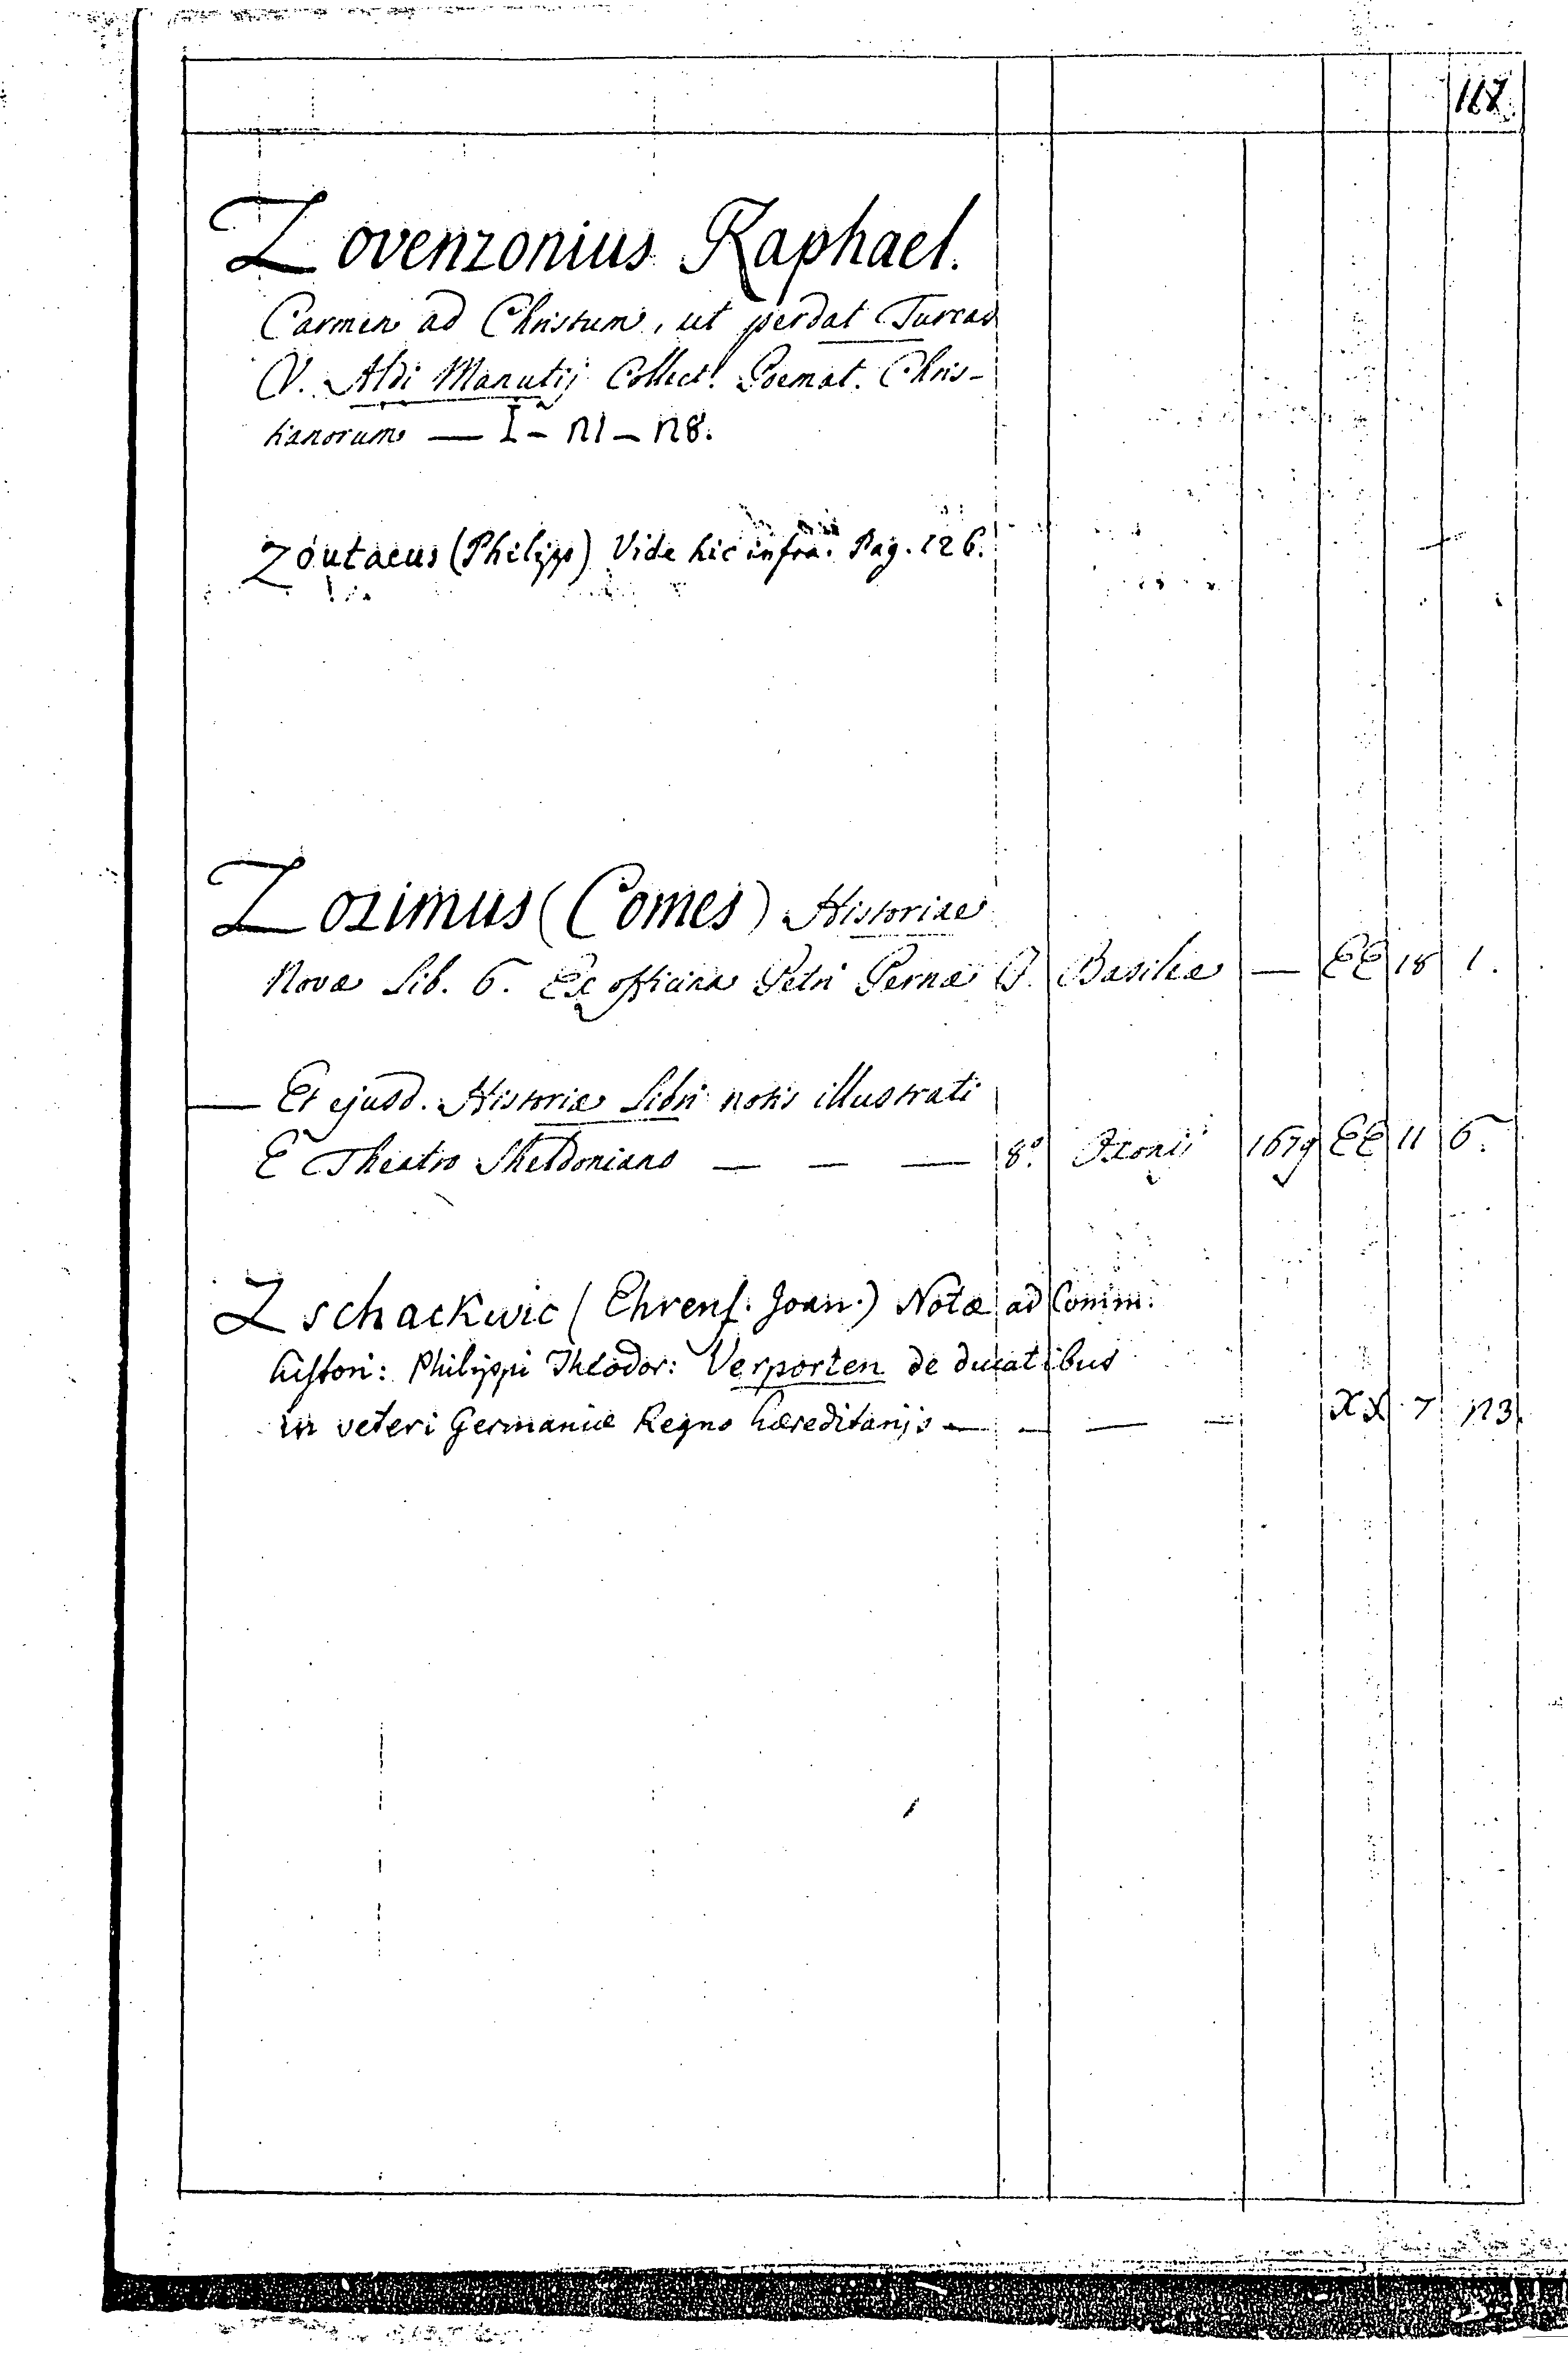 Zovenzonius Raphael.
Carmen ad Christum, ut perdat Turcas
V. Aldi Manutij Collect. Poemat. Chris-
tianorum — I - n1 - n8.
Zoutaeus (Philipp) Vide hic infra. Pag. 126.
Zozimus (Comes) Historiae
Novæ Lib. 6. Ex officina Petri Pernæ Basileæ — EE 18 1.
— Et ejusd. Historiæ Libri notis illustrati
E Theatro Sheldoniano — — — 8° Oxonij 1679 EE 11 6.
Zschackwic (Ehrenf. Joan.) Notæ ad Comm.
histori: Philippi Theodor: Verporten de ducatibus
in veteri Germaniæ Regno hæreditarijs — — — — XX 7 n3.